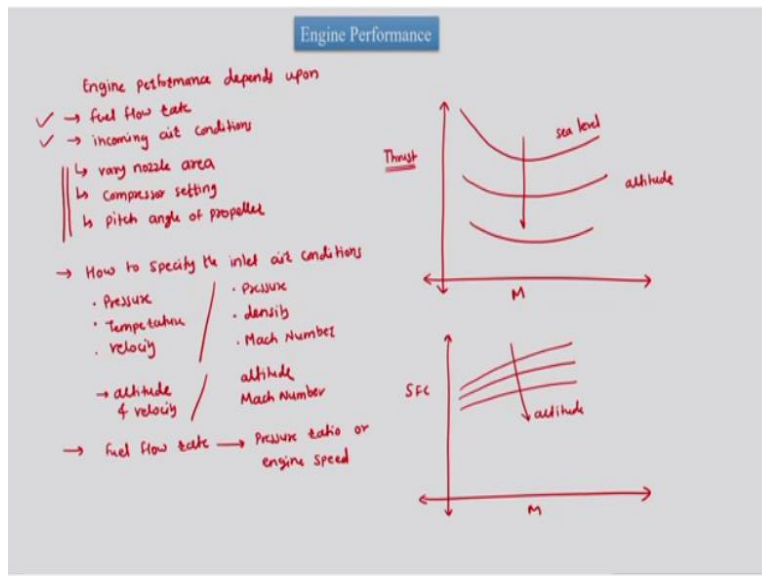 Engine Performance
Engine performance depends upon
→ fuel flow rate
→ incoming air conditions
↳ vary nozzle area
↳ compressor setting
↳ pitch angle of propeller
→ How to specify the inlet air conditions
· Pressure
· Temperature
· velocity
· Pressure
· density
· Mach Number
→ altitude
& velocity
altitude
Mach Number
→ fuel flow rate → Pressure ratio or
engine speed
Thrust
sea level
altitude
M
SFC
altitude
M